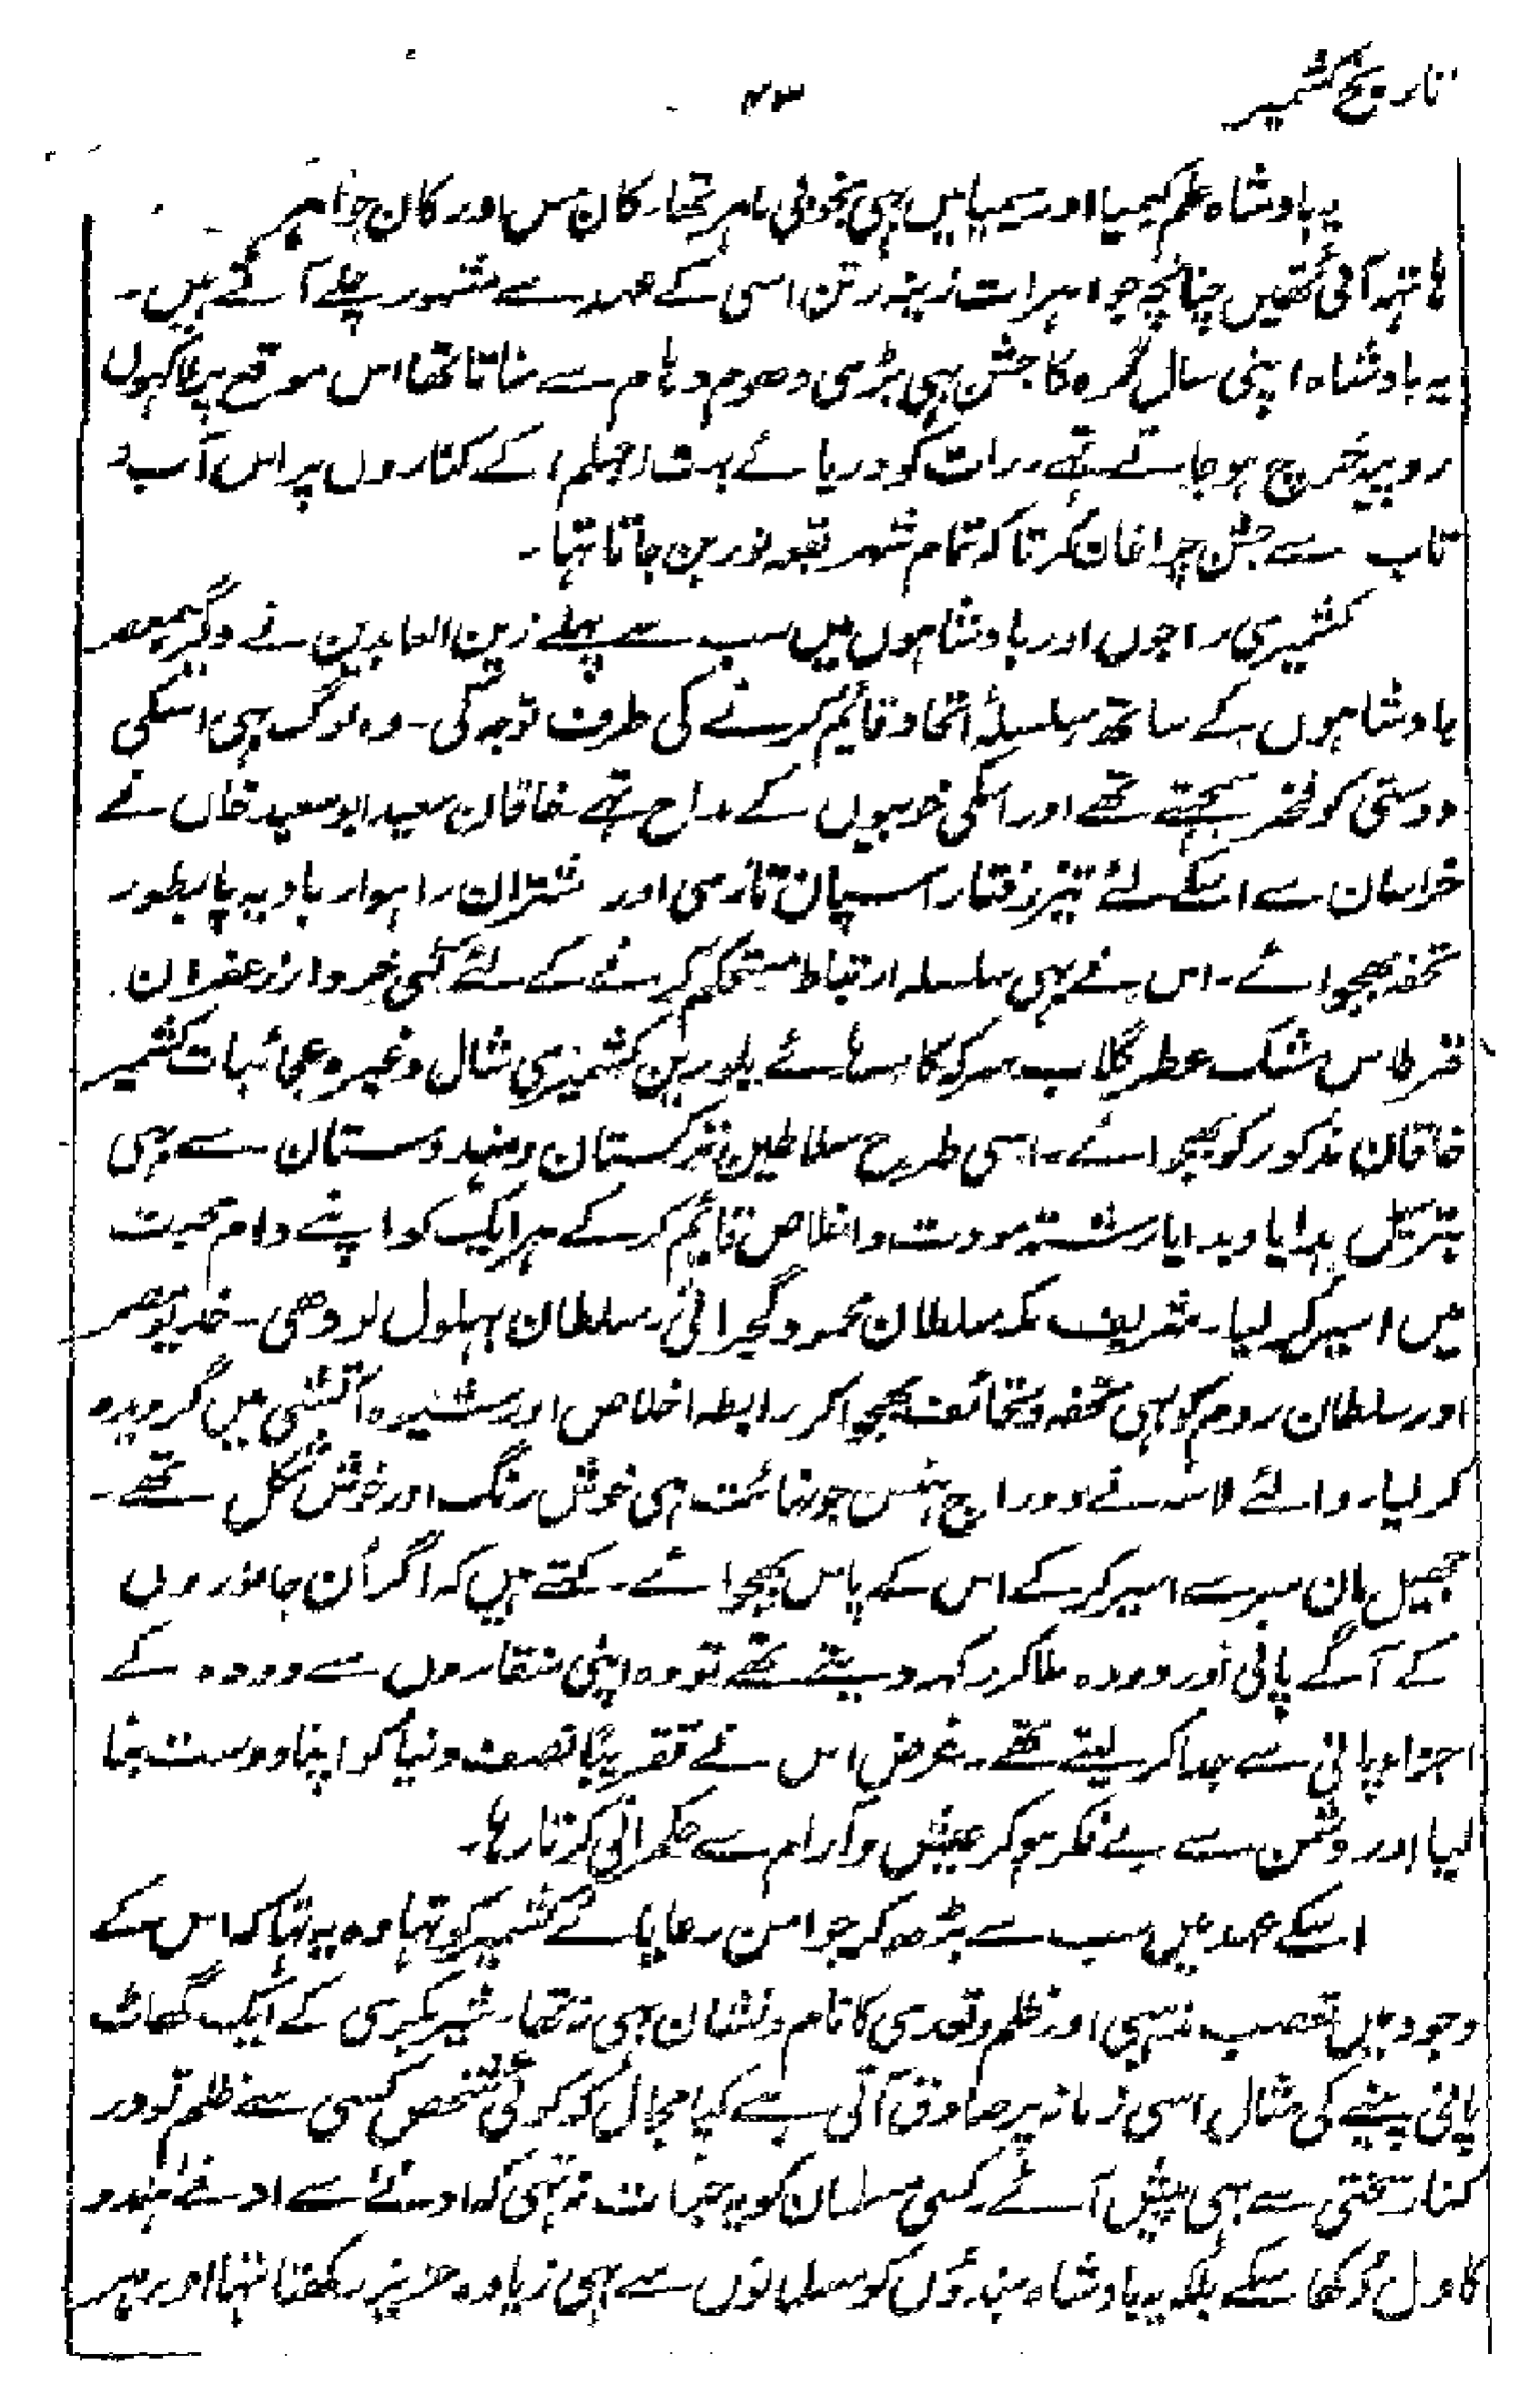 تاریخ کشمیر
۴۳
یہ بادشاہ علم کیمیا اور سیمیا میں بہی بخوبی ماہر تھا۔ کان مس اور کان جواہر
ہاتہہ آئی تھیں چنانچہ جواہرات زینہ رتن اسی کے عہد سے مشہور چلے آتے ہیں۔
یہ بادشاہ اپنی سال گرہ کا جشن بہی بڑی دھوم دہام سے مناتا تھا اس موقع پر لاکہوں
روپیہ خرچ ہو جاتے تہے۔ رات کو دریائے بہت (جہلم) کے کناروں پر اس آب و
تاب سے جشن چراغان کرتا کہ تمام شہر بقعہ نور بن جاتا تہا۔
کشمیری راجوں اور بادشاہوں میں سب سے پہلے زین العابدین نے دیگر ہمعصر
بادشاہوں کے ساتھ سلسلہ اتحاد قایٔم کرنے کی طرف توجہ کی۔ وہ لوگ بہی اسکی
دوستی کو فخر سمجہتے تھے اور اسکی خوبیوں کے مداح تہے۔ خاقان سعید ابو سعید خاں نے
خراسان سے اسکے لئے تیز رفتار اسپان تازی اور شتران راہوار بادیہ پا بطور
تحفہ بھجوائے۔ اس نے بہی سلسلہ ارتباط مستحکم کرنے کے لئے کئی خروار زعفران
قرطاس مشک عطر گلاب سرکہ کاسہائے بلورین کشمیری شال و غیرہ عجائبات کشمیر
خاقان مذکور کو بھجوائے۔ اسی طرح سلاطین ترکستان و ہندوستان سے بہی
بترسیل ہدایا وبدایا رشتہ مودت و اخلاص قایٔم کر کے ہر ایک کو اپنے دام محبت
میں اسیر کر لیا۔ شریف مکہ سلطان محمود گجراتی۔ سلطان بہلول لودھی۔ خدیو مصر
اور سلطان روم کو بہی تحفہ و تحائف بھجوا کر رابطہ اخلاص اور رشتہ آشتی میں گرویدہ
کر لیا۔ والئے لاسہ نے دو راج ہنس جو نہائت ہی خوش رنگ اور خوش شکل تھے۔
جھیل مان سر سے اسیر کر کے اس کے پاس بھجوائے۔ کہتے ہیں کہ اگر اُن جانوروں
کے آگے پانی اور دودہ ملا کر رکہہ دیتے تھے تو وہ اپنی منقاروں سے دودہ کے
اجزاء پانی سے جدا کر لیتے تھے۔ غرض اس نے تقریباً نصف دنیا کو اپنا دوست بنا
لیا اور دشمن سے بے فکر ہو کر عیش و آرام سے حکمرانی کرتا رہا۔
اسکے عہد میں سب سے بڑھ کر جو امن رعایائے کشمیر کو تہا وہ یہ تہا کہ اس کے
وجود میں تعصب مذہبی اور ظلم و تعدی کا نام و نشان بہی نہ تھا۔ شیر بکری کے ایک گھاٹ
پانی پینے کی مثال اسی زمانہ پر صادق آتی ہے کیا مجال کہ کوئی شخص کسی سے ظلم تو در
کنار سختی سے بہی پیش آئے۔ کسی مسلمان کو یہ جرات نہ تہی کہ ادنےٰ سے ادنےٰ ہندو
کا دل دُکھا سکے بلکہ یہ بادشاہ ہندوٗں کو مسلمانوں سے بہی زیادہ عزیز رکھتا تہا اور ہر